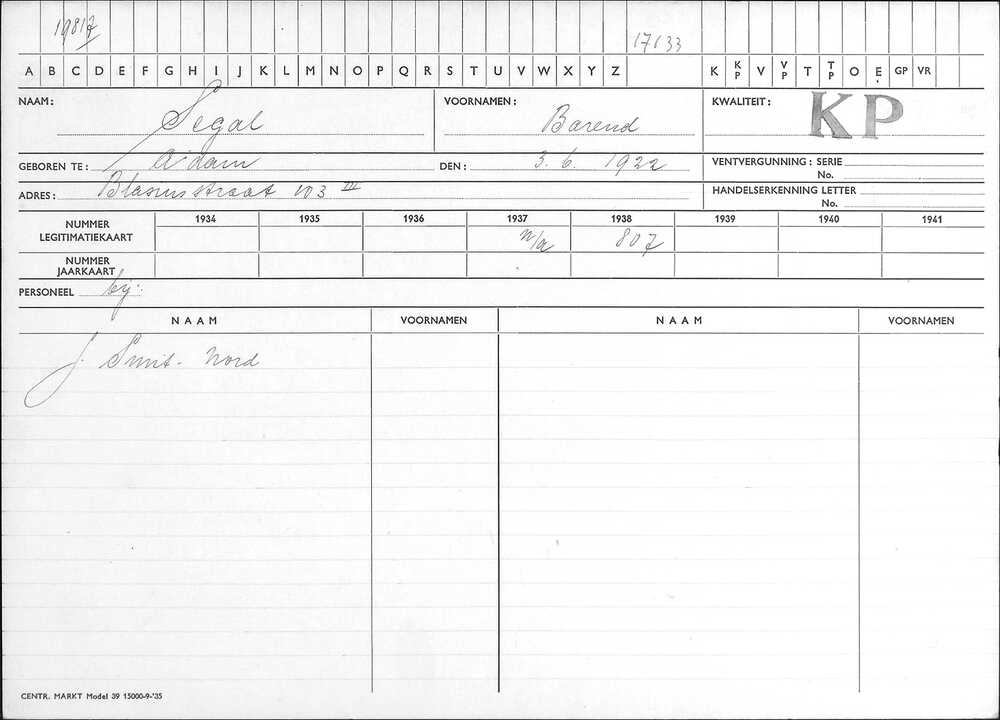 19817
17133
A B C D E F G H I J K L M N O P Q R S T U V W X Y Z K KP V VP T TP O E, GP VR
NAAM: Segal VOORNAMEN: Barend KWALITEIT: KP
GEBOREN TE: A'dam DEN: 3.6.1922 VENTVERGUNNING: SERIE
No.
ADRES: Blasiusstraat 103 III HANDELSERKENNING LETTER
No.
NUMMER LEGITIMATIEKAART 1934 1935 1936 1937 1938 1939 1940 1941
n/a 807
NUMMER JAARKAART
PERSONEEL bij:
NAAM VOORNAMEN NAAM VOORNAMEN
J. Smit-Nord
CENTR. MARKT Model 39 15000-9-'35